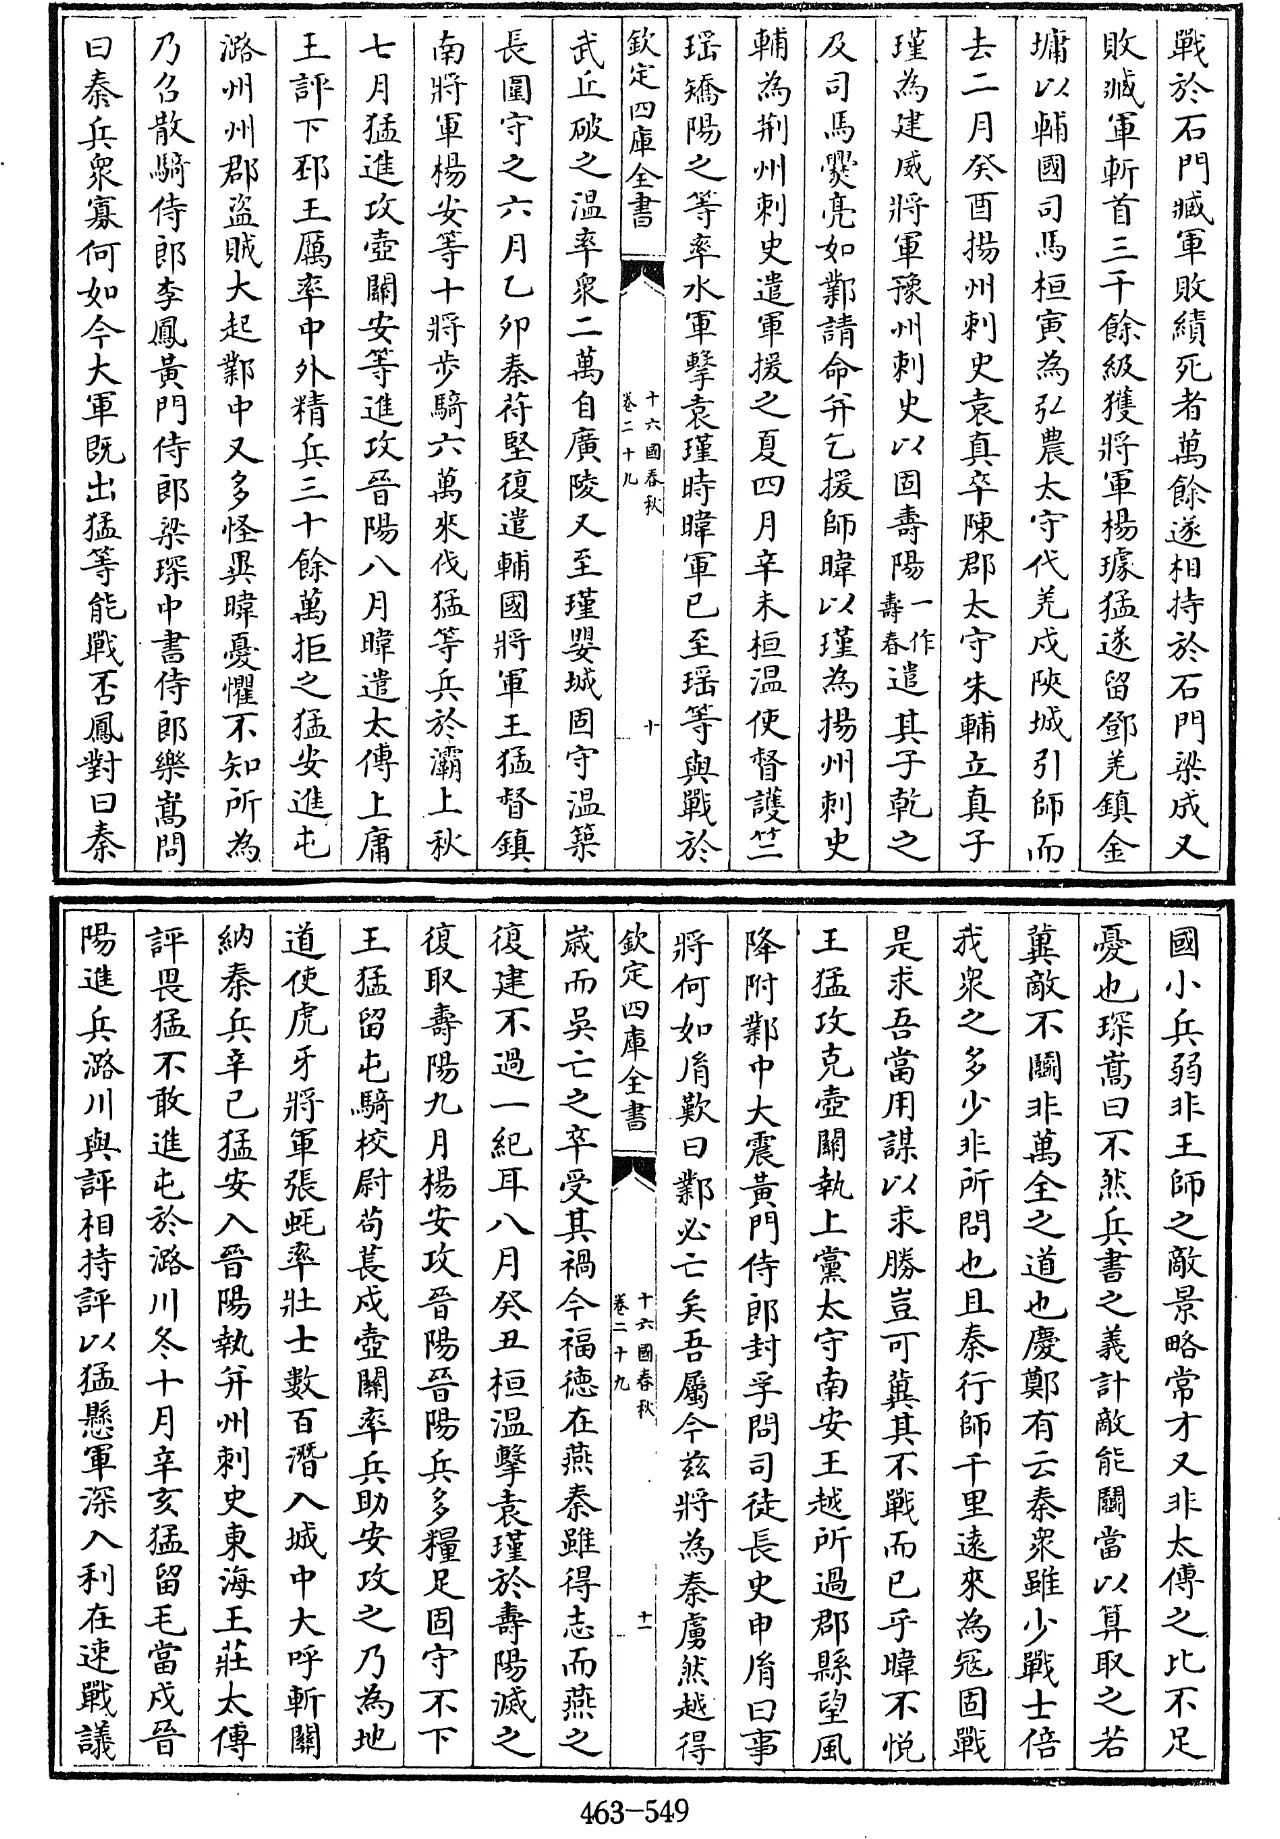 戰於石門臧軍敗績死者萬餘遂相持於石門梁成又
敗臧軍斬首三千餘級獲將軍楊璩猛遂留鄧羌鎮金
墉以輔國司馬桓寅為弘農太守代羌戍陜城引師而
去二月癸酉揚州刺史袁真卒陳郡太守朱輔立真子
瑾為建威將軍豫州刺史以固壽陽一作壽春遣其子乾之
及司馬爨亮如鄴請命并乞援師暐以瑾為揚州刺史
輔為荆州刺史遣軍援之夏四月辛未桓温使督護竺
瑶矯陽之等率水軍擊袁瑾時暐軍已至瑶等與戰於
欽定四庫全書
十六國春秋
卷二十九
十
武丘破之温率衆二萬自廣陵又至瑾嬰城固守温築
長圍守之六月乙卯秦苻堅復遣輔國將軍王猛督鎮
南將軍楊安等十將步騎六萬來伐猛等兵於灞上秋
七月猛進攻壺關安等進攻晉陽八月暐遣太傅上庸
王評下邳王厲率中外精兵三十餘萬拒之猛安進屯
潞州州郡盜賊大起鄴中又多怪異暐憂懼不知所為
乃召散騎侍郎李鳳黄門侍郎梁琛中書侍郎樂嵩問
曰秦兵衆寡何如今大軍既出猛等能戰否鳳對曰秦
國小兵弱非王師之敵景略常才又非太傅之比不足
憂也琛嵩曰不然兵書之義計敵能鬭當以算取之若
冀敵不鬭非萬全之道也慶鄭有云秦衆雖少戰士倍
我衆之多少非所問也且秦行師千里遠來為寇固戰
是求吾當用謀以求勝豈可冀其不戰而已乎暐不悦
王猛攻克壺關執上黨太守南安王越所過郡縣望風
降附鄴中大震黄門侍郎封孚問司徒長史申胤曰事
將何如胤歎曰鄴必亡矣吾屬今兹將為秦虜然越得
欽定四庫全書
十六國春秋
卷二十九
十一
歲而吳亡之卒受其禍今福德在燕秦雖得志而燕之
復建不過一紀耳八月癸丑桓温擊袁瑾於壽陽滅之
復取壽陽九月楊安攻晉陽晉陽兵多糧足固守不下
王猛留屯騎校尉苟萇戍壺關率兵助安攻之乃為地
道使虎牙將軍張蚝率壯士數百潛入城中大呼斬關
納秦兵辛巳猛安入晉陽執并州刺史東海王莊太傅
評畏猛不敢進屯於潞川冬十月辛亥猛留毛當戍晉
陽進兵潞川與評相持評以猛懸軍深入利在速戰議
463-549